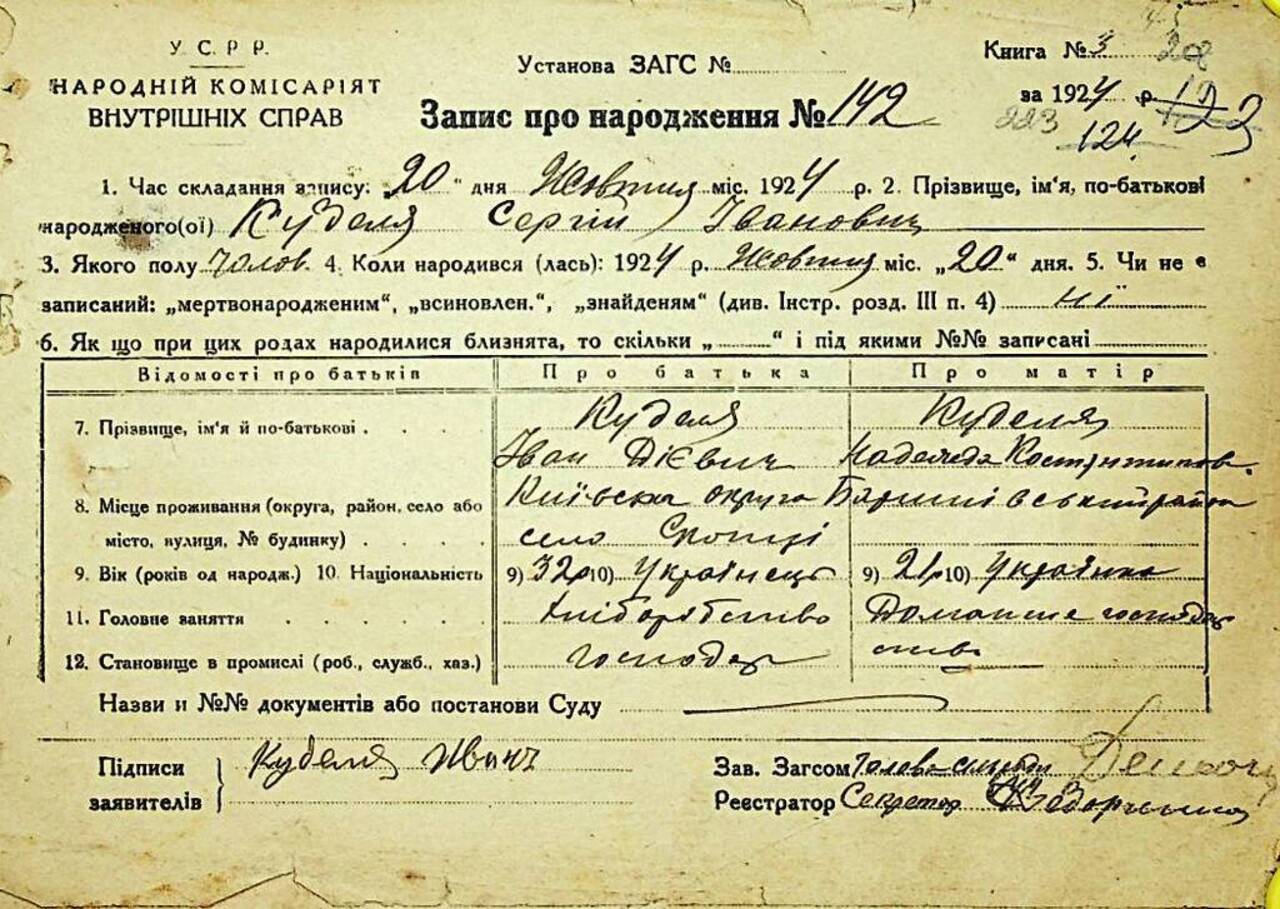 У. С. Р. Р.
НАРОДНІЙ КОМІСАРІЯТ
ВНУТРІШНІХ СПРАВ
Установа ЗАГС №
Запис про народження № 142
Книга № 3
за 1924 р.
223
124
1. Час складання запису: „20“ дня Жовтня міс. 1924 р. 2. Прізвище, ім'я, по-батькові
народженого(ої) Куделя Сергій Іванович
3. Якого полу чолов. 4. Коли народився (лась): 1924 р. Жовтня міс. „20“ дня. 5. Чи не є
записаний: „мертвонародженим“, „всиновлен.“, „знайденям“ (див. Інстр. розд. III п. 4) ні
6. Як що при цих родах народилися близнята, то скільки „ “ і під якими №№ записані
Відомості про батьків Про батька Про матір
7. Прізвище, ім'я й по-батькові Куделя Куделя
Іван Дієвич Надежда Костянтинов.
8. Місце проживання (округа, район, село або Київська округа Баришівський район
місто, вулиця, № будинку) село Скопці
9. Вік (років од народж.) 10. Національність 9) 32р 10) Українець 9) 21р 10) Українка
11. Головне заняття Хліборобство Домашнє господар
12. Становище в промислі (роб., служб., хаз.) господар ство
Назви и №№ документів або постанови Суду
Підписи Куделя Иван
заявителів
Зав. Загсом Голова сільради
Реєстратор Секретар Федорченко